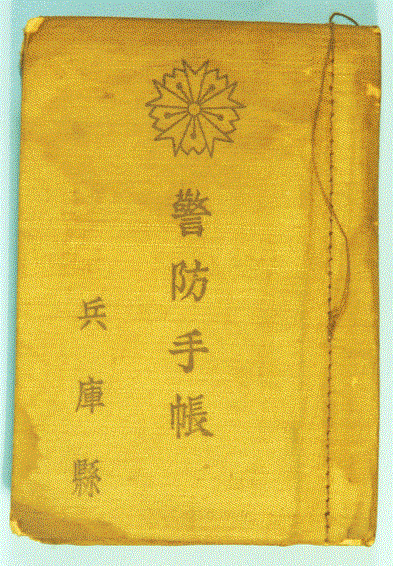 警防手帳
兵庫縣